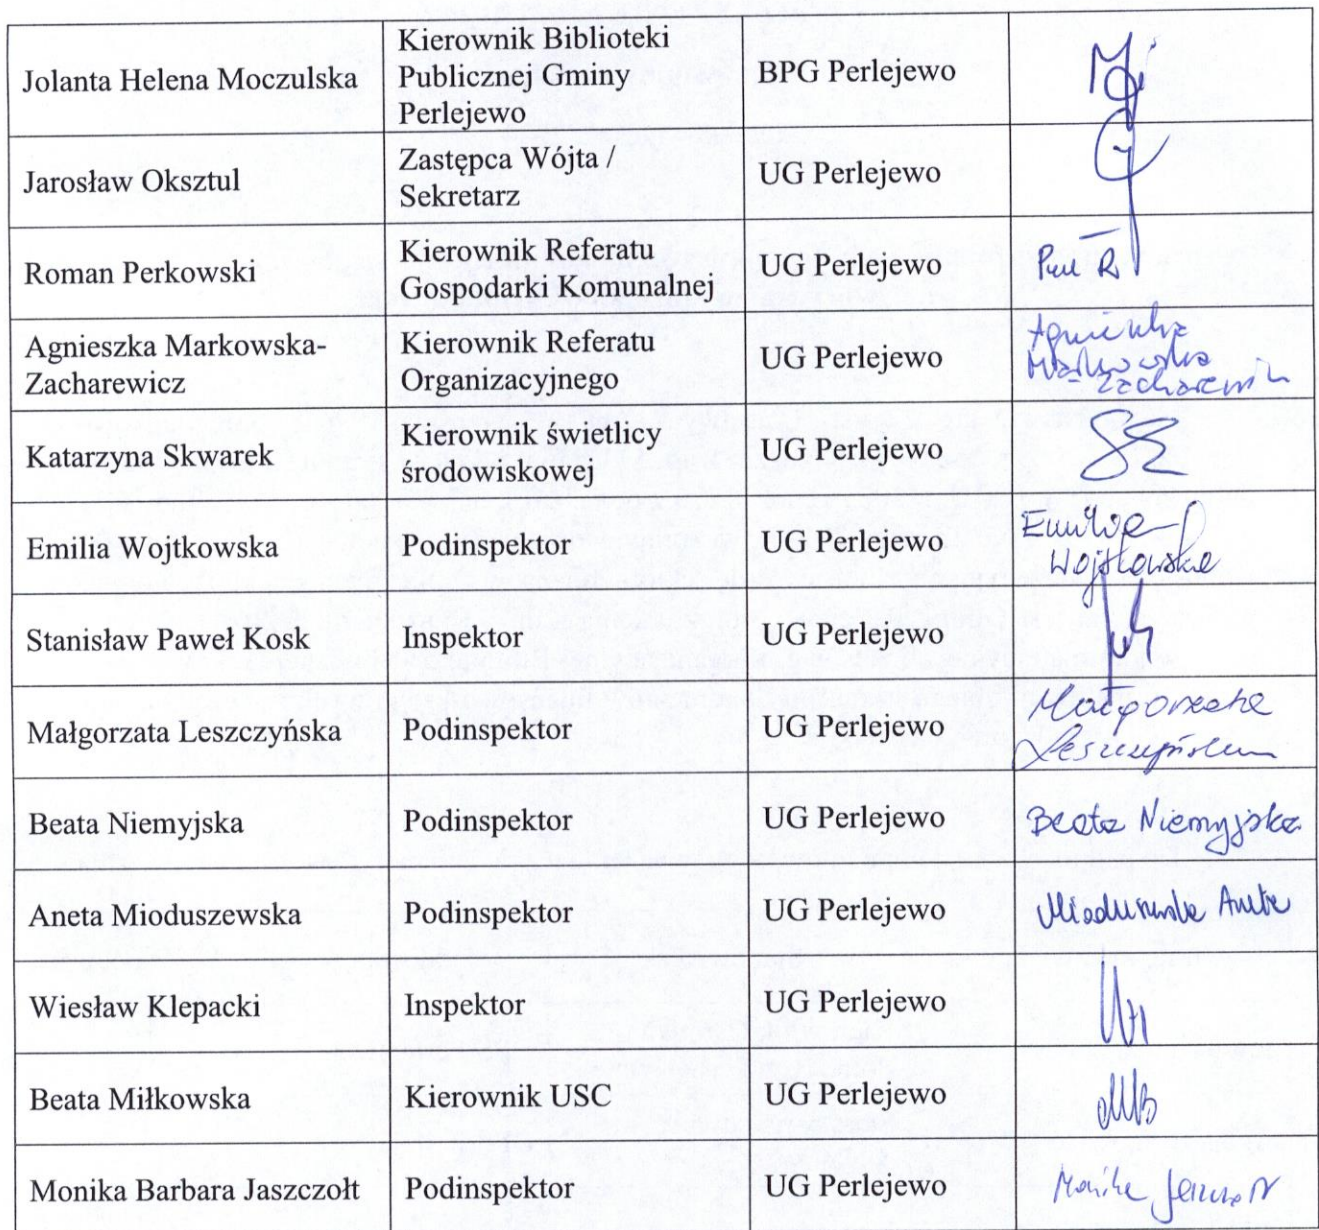 Jolanta Helena Moczulska
Kierownik Biblioteki
Publicznej Gminy
Perlejewo
BPG Perlejewo
Jarosław Oksztul
Zastępca Wójta /
Sekretarz
UG Perlejewo
Roman Perkowski
Kierownik Referatu
Gospodarki Komunalnej
UG Perlejewo
Agnieszka Markowska-
Zacharewicz
Kierownik Referatu
Organizacyjnego
UG Perlejewo
Agnieszka
Markowska
Zacharewicz
Katarzyna Skwarek
Kierownik świetlicy
środowiskowej
UG Perlejewo
Emilia Wojtkowska
Podinspektor
UG Perlejewo
Emilia
Wojtkowska
Stanisław Paweł Kosk
Inspektor
UG Perlejewo
Małgorzata Leszczyńska
Podinspektor
UG Perlejewo
Małgorzata
Leszczyńska
Beata Niemyjska
Podinspektor
UG Perlejewo
Beata Niemyjska
Aneta Mioduszewska
Podinspektor
UG Perlejewo
Mioduszewska Aneta
Wiesław Klepacki
Inspektor
UG Perlejewo
Beata Miłkowska
Kierownik USC
UG Perlejewo
MB
Monika Barbara Jaszczołt
Podinspektor
UG Perlejewo
Monika Jaszczołt